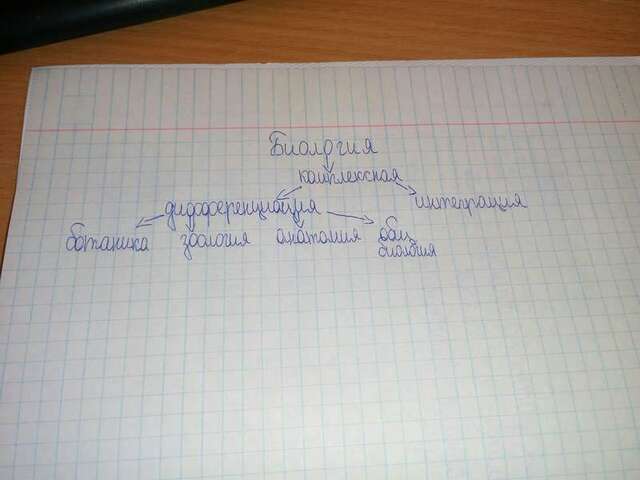 Биология
комплексная
дифференциация интеграция
ботаника зоология анатомия общ.
биология